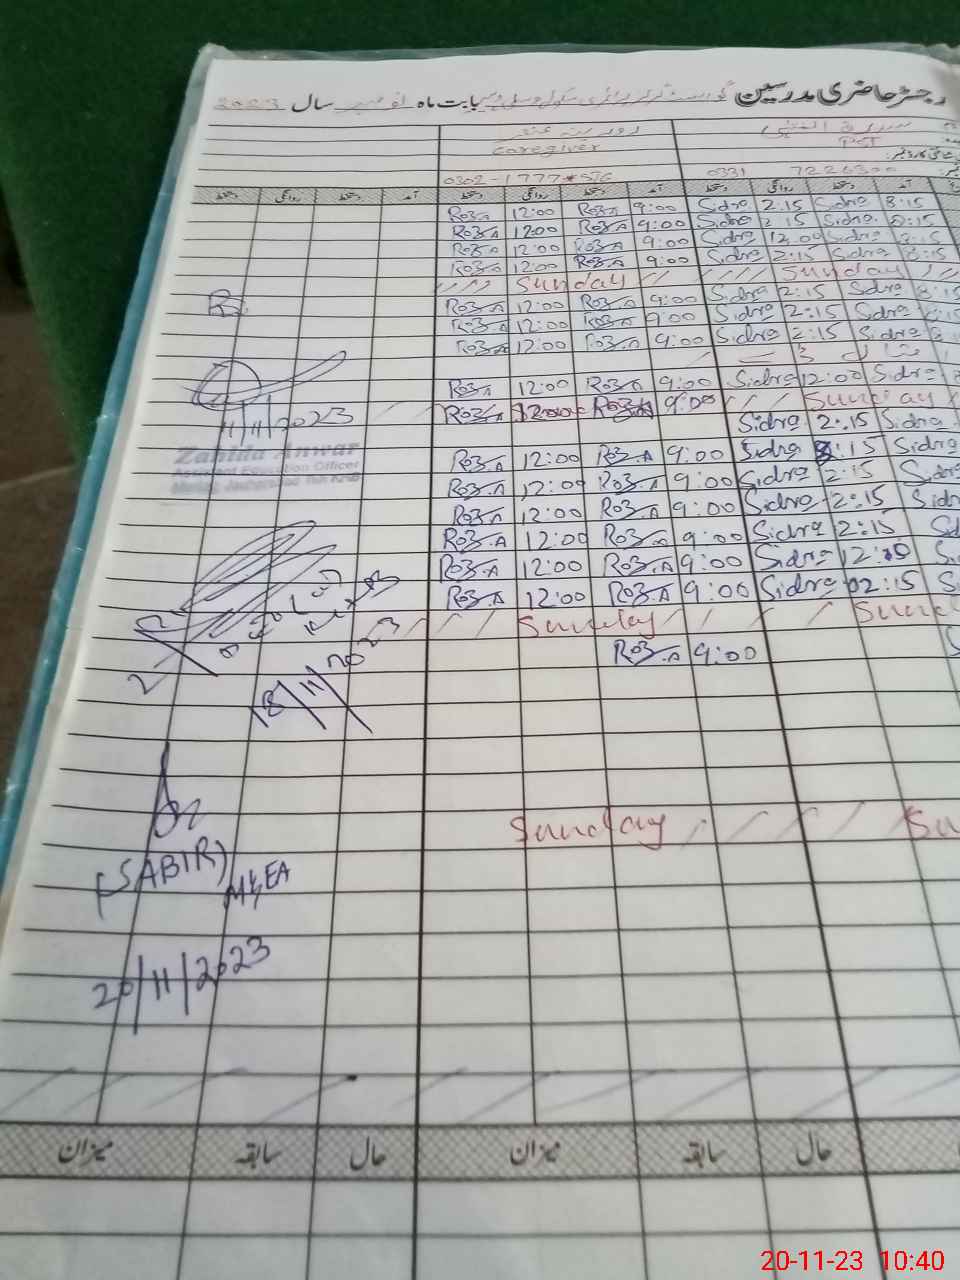 رجسڑ حاضری مدرسین گورنمنٹ گرلز پرائمری سکول بابت ماہ نومبر سال 2023
Caregiver PST
0331 7226300
دستخط روانگی دستخط آمد دستخط روانگی دستخط آمد دستخط روانگی دستخط آمد
RozA 12:00 RozA 9:00 Sidra 2:15 Sidra 8:15
RozA 12:00 RozA 9:00 Sidra 2:15 Sidra 8:15
RozA 12:00 RozA 9:00 Sidra 12:00 Sidra 8:15
RozA 12:00 RozA 9:00 Sidra 2:15 Sidra 8:15
Sunday Sunday
RozA 12:00 RozA 9:00 Sidra 2:15 Sidra 8:15
RozA 12:00 RozA 9:00 Sidra 2:15 Sidra
RozA 12:00 RozA 9:00 Sidra 2:15 Sidra
RozA 12:00 RozA 9:00 Sidra 12:00 Sidra
11/11/2023 RozA 12:00 RozA 9:00 Sunday
Sidra 2:15 Sidra
Zahida Anwar
Assistant Education Officer
RozA 12:00 RozA 9:00 Sidra :15 Sidra
RozA 12:00 RozA 9:00 Sidra 2:15
RozA 12:00 RozA 9:00 Sidra 2:15
RozA 12:00 RozA 9:00 Sidra 2:15
RozA 12:00 RozA 9:00 Sidra
RozA 12:00 RozA 9:00 Sidra 02:15
Sunday
RozA 9:00
18/11/2023
Sunday
(SABIR)
M&EA
20/11/2023
میزان سابقہ حال میزان سابقہ حال
20-11-23 10:40